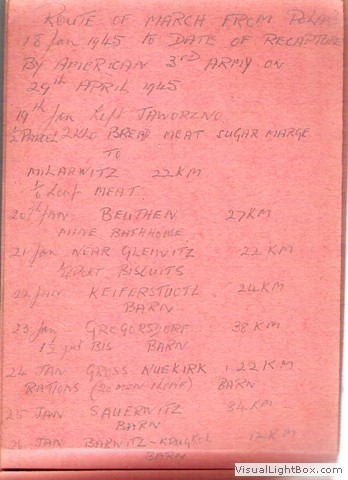 ROUTE OF MARCH FROM POLAND
18 Jan 1945 to DATE OF RECAPTURE
BY AMERICAN 3RD ARMY ON
29th APRIL 1945
19th Jan left JAWORZNO
1/2 PARCEL 2 KILO BREAD MEAT SUGAR MARGE
TO
MILARWITZ 22KM
1/6 Loaf MEAT
20th JAN BEUTHEN 27KM
MINE BATHHOUSE
21 Jan NEAR GLEIWITZ 22 KM
BISCUITS
22 JAN KEIFERSTUDTL 24KM
BARN
23 Jan GREGORSDORF 38 KM
1 1/2 pkt BIS BARN
24 JAN GROSS NUEKIRK 22 KM
RATIONS (20 MEN 1 LOAF) BARN
25 JAN SAUERWITZ 34 KM
BARN
26 JAN BARNITZ - 12 KM
BARN
VisualLightBox.com